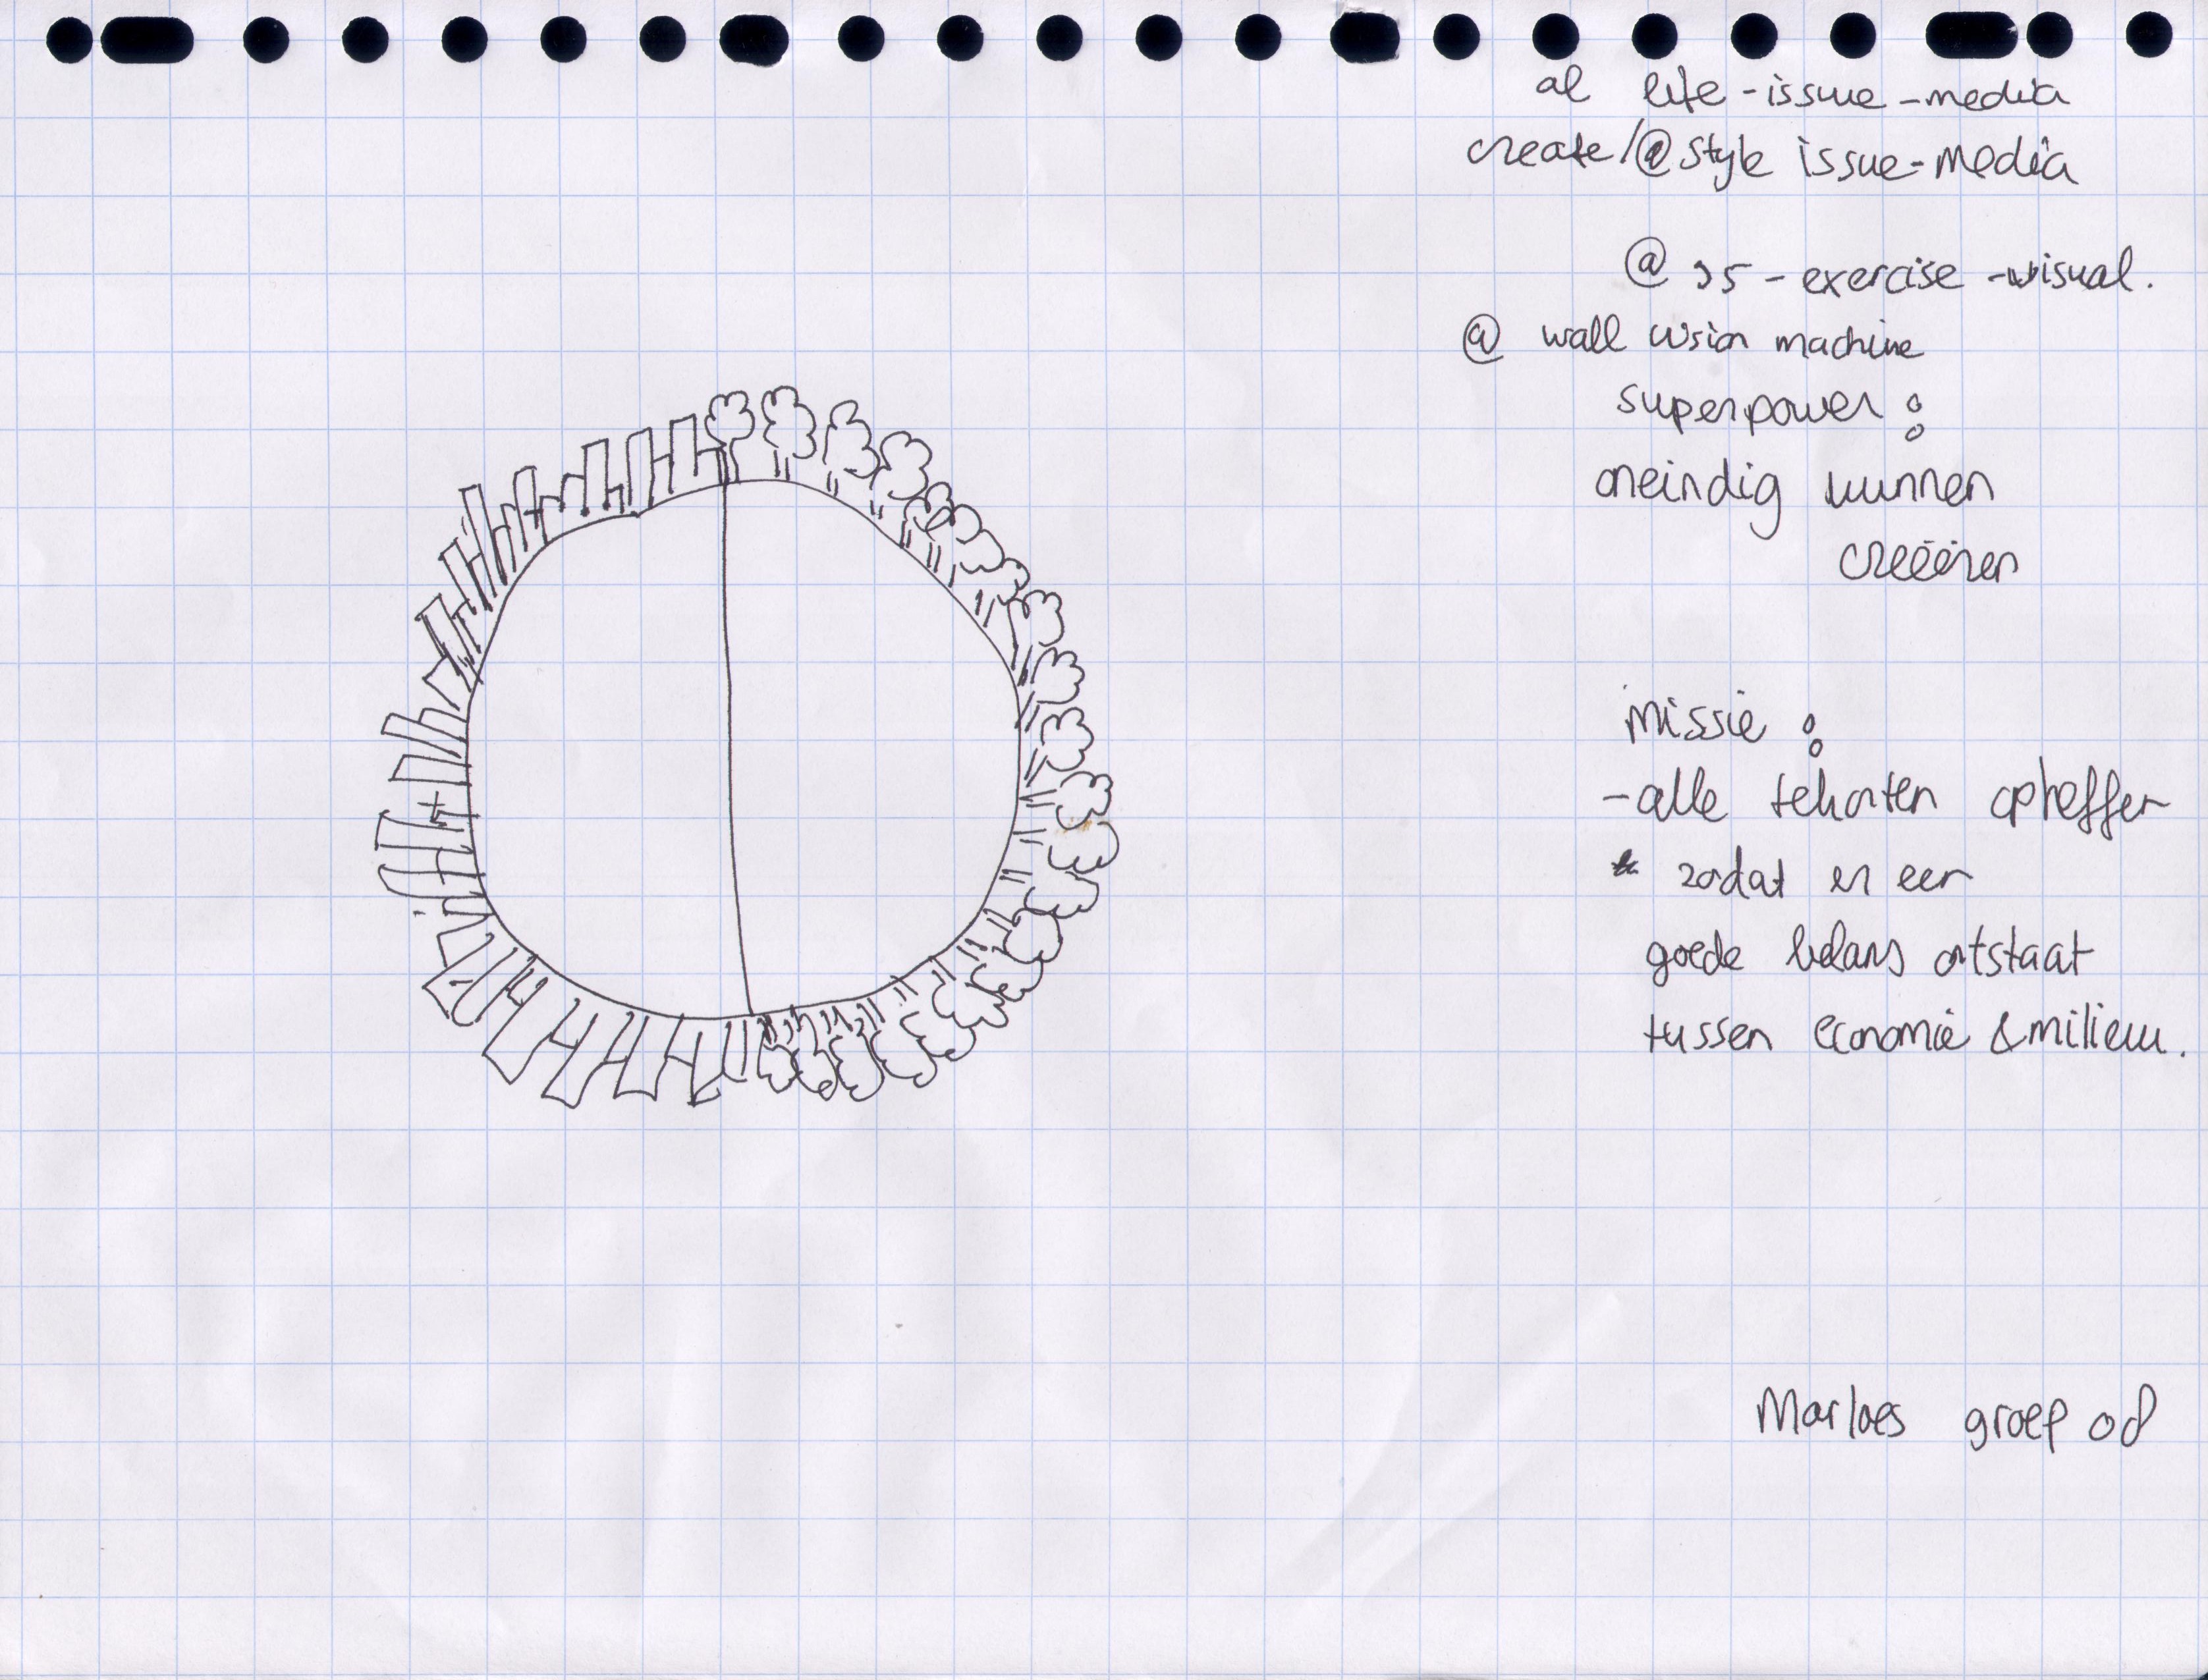 al life-issue-media
create/@style issue-media
@ 35-exercise-visual.
@ wall vision machine
superpower:
oneindig kunnen
creëëren
missie:
-alle tekorten opheffen
* zodat er een
goede balans ontstaat
tussen economie & milieu.
Marloes groep od